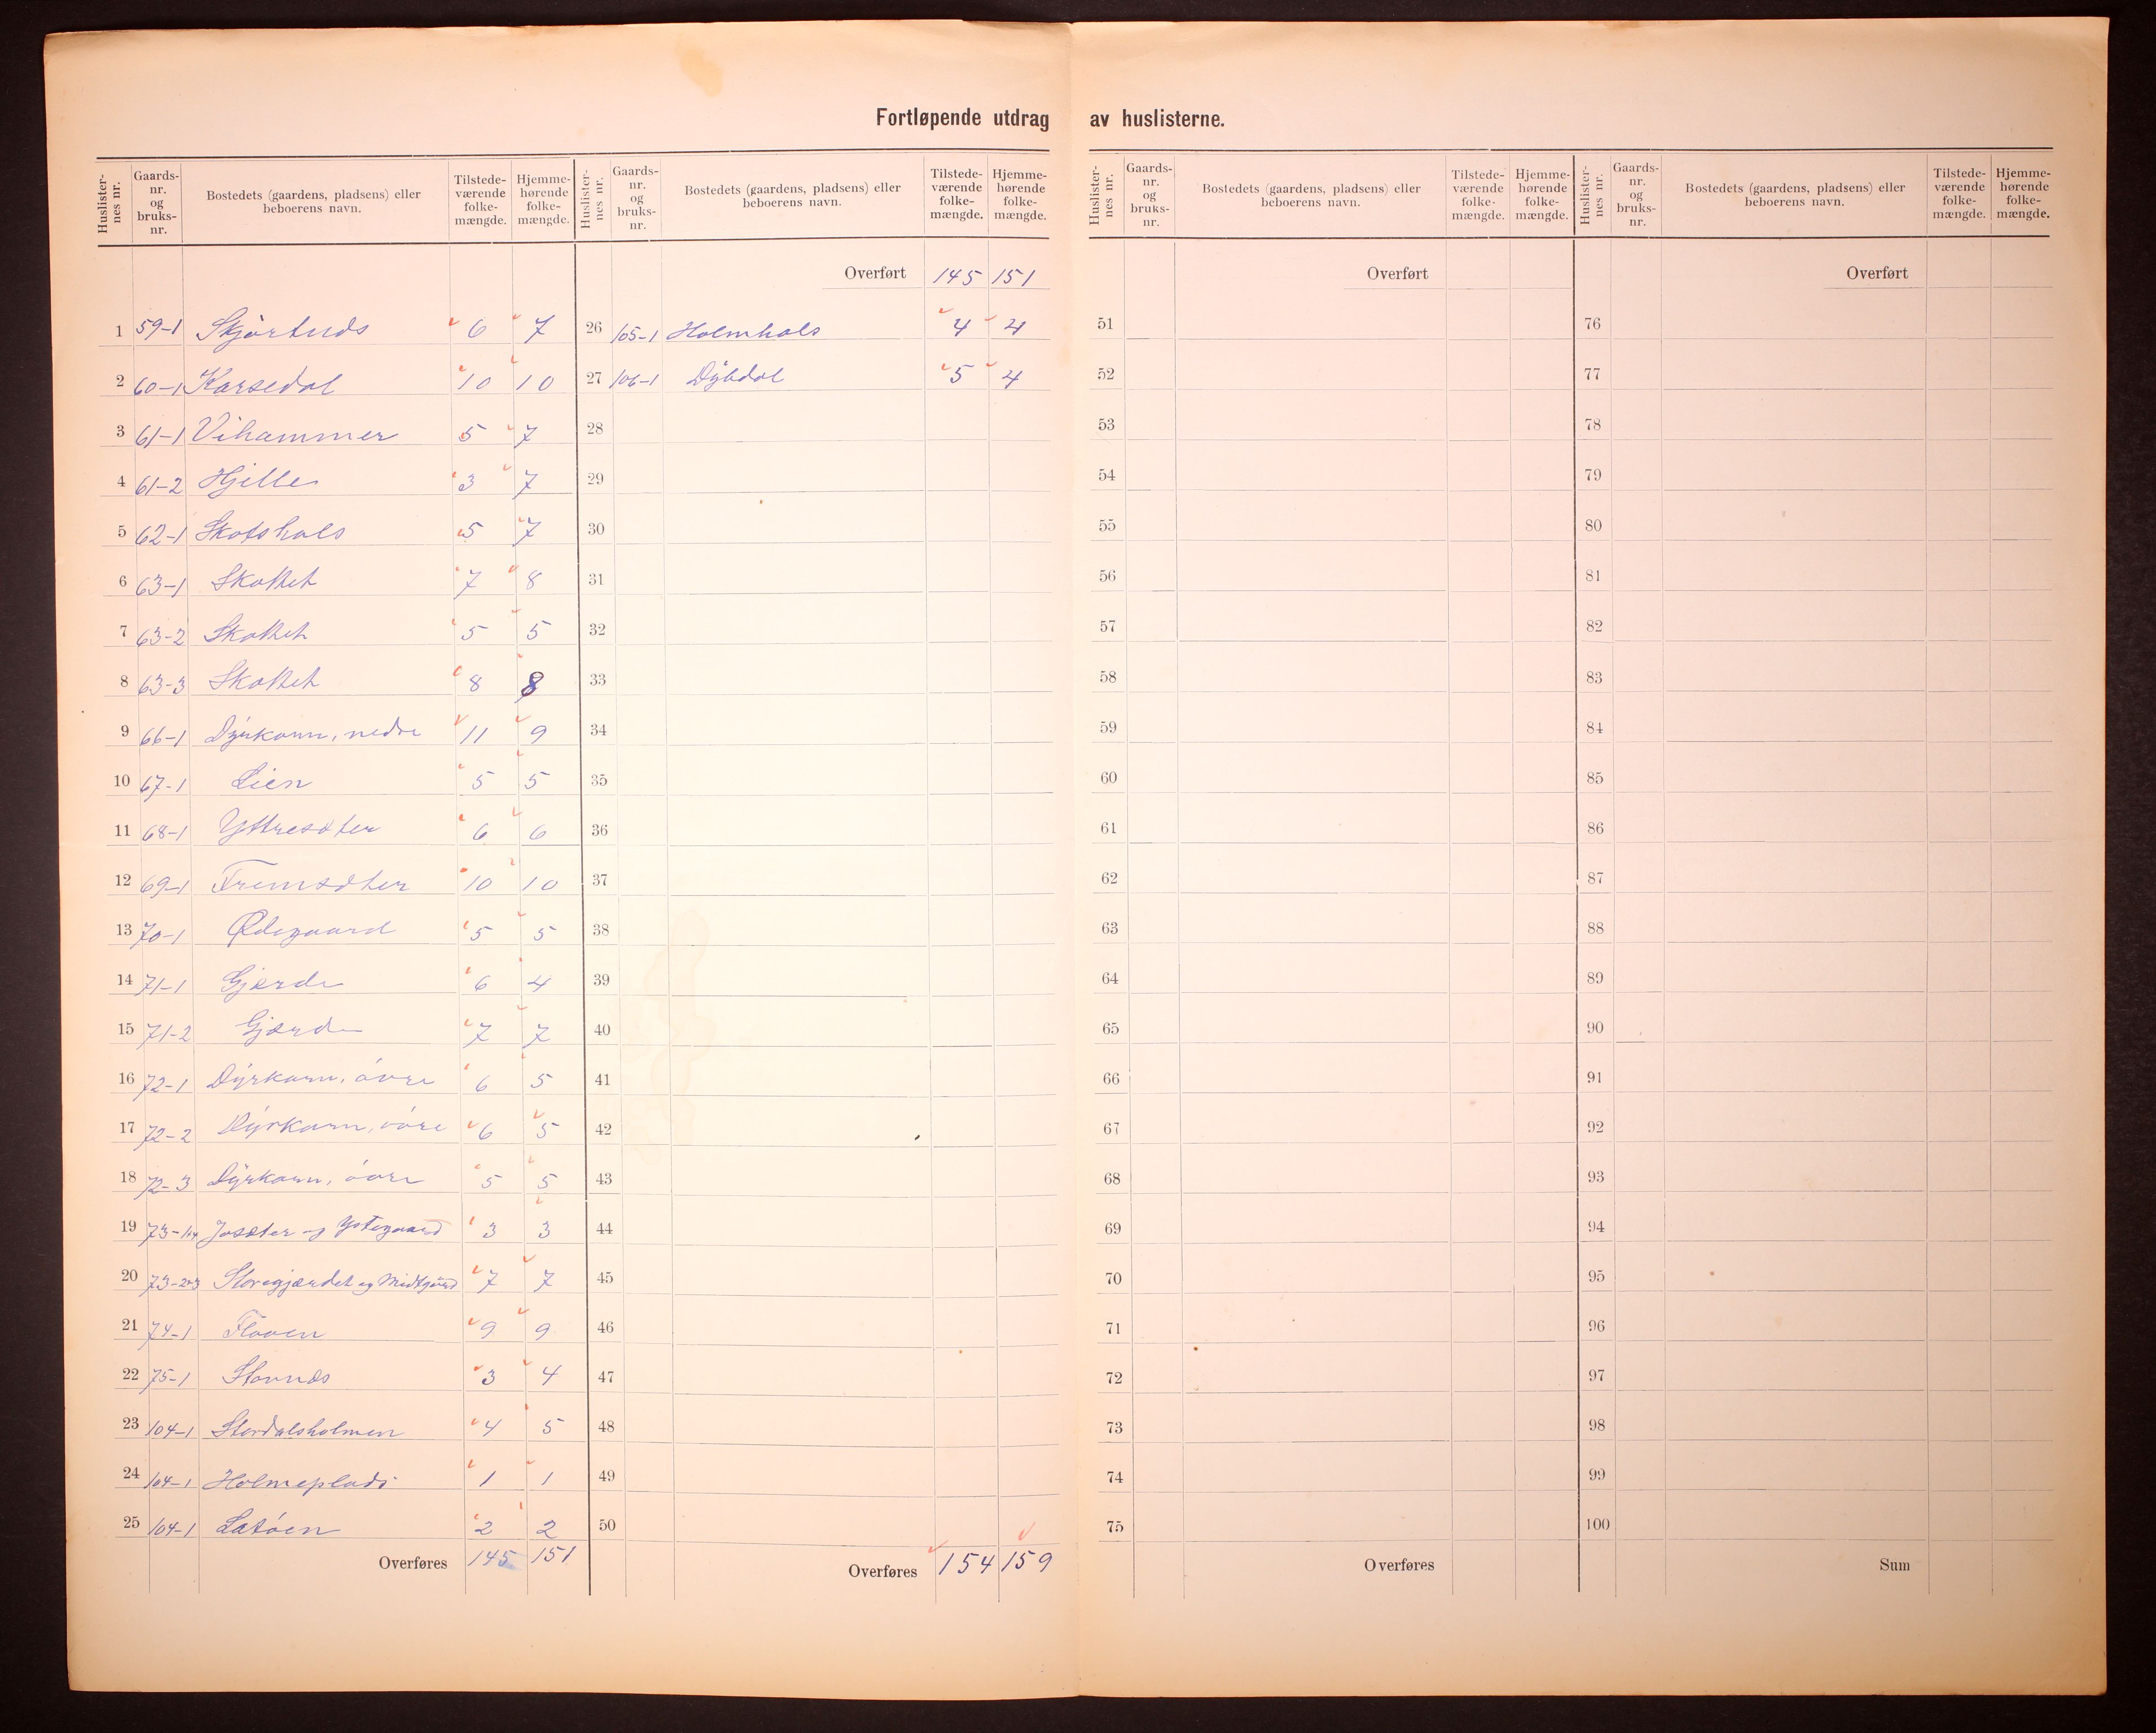 Fortløpende utdrag av huslisterne.
Huslister-nes nr. Gaards-nr. og bruks-nr. Bostedets (gaardens, pladsens) eller beboerens navn. Tilstede-værende folke-mængde. Hjemme-hørende folke-mængde. Huslister-nes nr. Gaards-nr. og bruks-nr. Bostedets (gaardens, pladsens) eller beboerens navn. Tilstede-værende folke-mængde. Hjemme-hørende folke-mængde. Huslister-nes nr. Gaards-nr. og bruks-nr. Bostedets (gaardens, pladsens) eller beboerens navn. Tilstede-værende folke-mængde. Hjemme-hørende folke-mængde. Huslister-nes nr. Gaards-nr. og bruks-nr. Bostedets (gaardens, pladsens) eller beboerens navn. Tilstede-værende folke-mængde. Hjemme-hørende folke-mængde.
Overført 145 151 Overført Overført
1 59-1 6 7 26 105-1 Holmhals 4 4 51 76
2 60-1 Karsedal 10 10 27 106-1 Dybdal 5 4 52 77
3 61-1 Vihammer 5 7 28 53 78
4 61-2 Hjelle 3 7 29 54 79
5 62-1 Skotshals 5 7 30 55 80
6 63-1 Skottet 7 8 31 56 81
7 63-2 Skottet 5 5 32 57 82
8 63-3 Skottet 8 8 33 58 83
9 66-1 Dyrkorn, nedre 11 9 34 59 84
10 67-1 Lien 5 5 35 60 85
11 68-1 Yttresæter 6 6 36 61 86
12 69-1 Fremsæter 10 10 37 62 87
13 70-1 Ødegaard 5 5 38 63 88
14 71-1 Gjærde 6 4 39 64 89
15 71-2 Gjærde 7 7 40 65 90
16 72-1 Dyrkorn, övre 6 5 41 66 91
17 72-2 Dyrkorn, övre 6 5 42 67 92
18 72-3 Dyrkorn, övre 5 5 43 68 93
19 73-1+4 Josæter og Ystegaard 3 3 44 69 94
20 73-2+3 Storegjærdet og Midtgaard 7 7 45 70 95
21 74-1 Flöoen 9 9 46 71 96
22 75-1 Stavnæs 3 4 47 72 97
23 104-1 Stordalsholmen 4 5 48 73 98
24 104-1 Holmeplads 1 1 49 74 99
25 104-1 Latöen 2 2 50 75 100
Overføres 145 151 Overføres 154 159 Overføres Sum